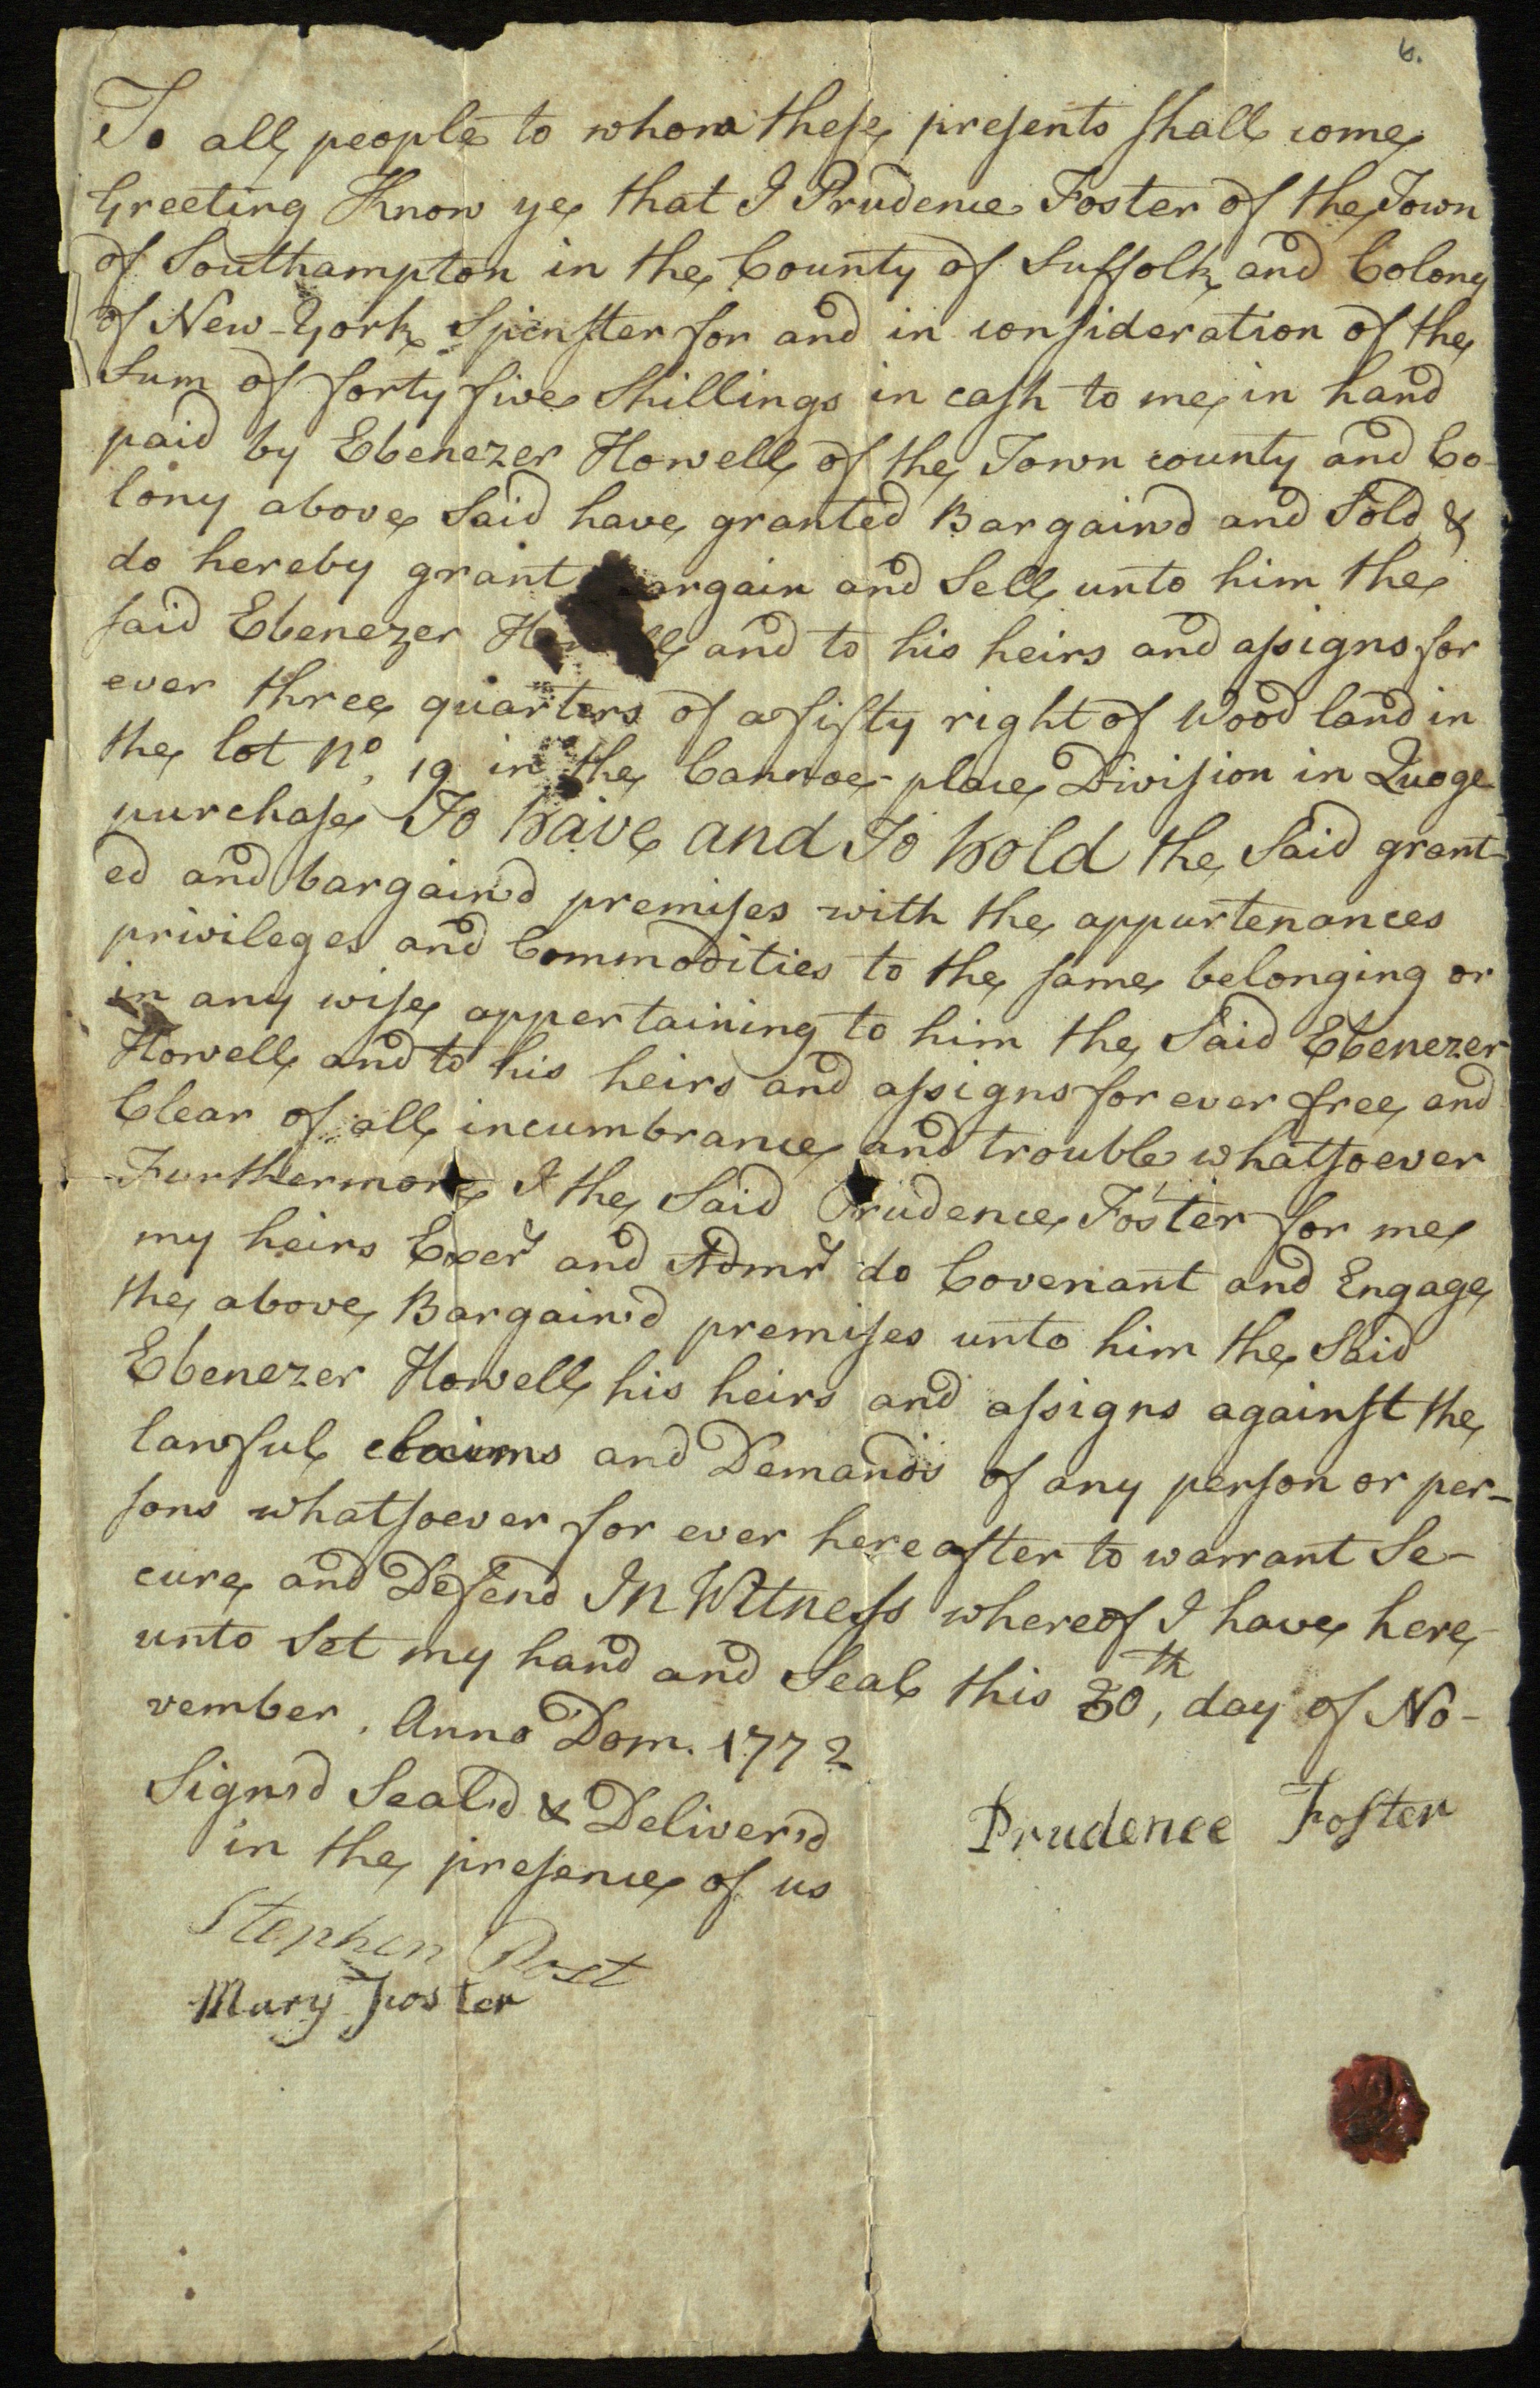 6.
To all people to whom these presents shall come
Greeting Know ye that I Prudence Foster of the Town
of Southampton in the County of Suffolk and Colony
of New-York Spinster for and in consideration of the
Sum of forty five Shillings in cash to me in hand
paid by Ebenezer Howell of the Town county and Co-
lony above Said have granted Bargain'd and Sold &
do hereby grant argain and Sell unto him the
said Ebenezer and to his heirs and assigns for
ever three quarters of a fifty right of Wood land in
the lot No, 19 in the Cannoe-place Division in Quoge
purchase To have and To hold the Said grant-
ed and bargain'd premises with the appurtenances
privileges and Commodities to the same belonging or
in any wise appertaining to him the Said Ebenezer
Howell and to his heirs and assigns for ever free and
Clear of all incumbrance and trouble whatsoever
Furthermore I the Said Prudence Foster for me
my heirs Exers and Admrs do Covenant and Engage
the above Bargain'd premises unto him the Said
Ebenezer Howell his heirs and assigns against the
lawful claims and Demands of any person or per-
sons whatsoever for ever hereafter to warrant Se-
cure and Defend In Witness whereof I have here-
unto Set my hand and Seal this 30th, day of No-
vember. Anno Dom. 1772
Sign'd Seal'd & Deliver'd
in the presence of us
Prudence Foster
Stephen Post
Mary Foster